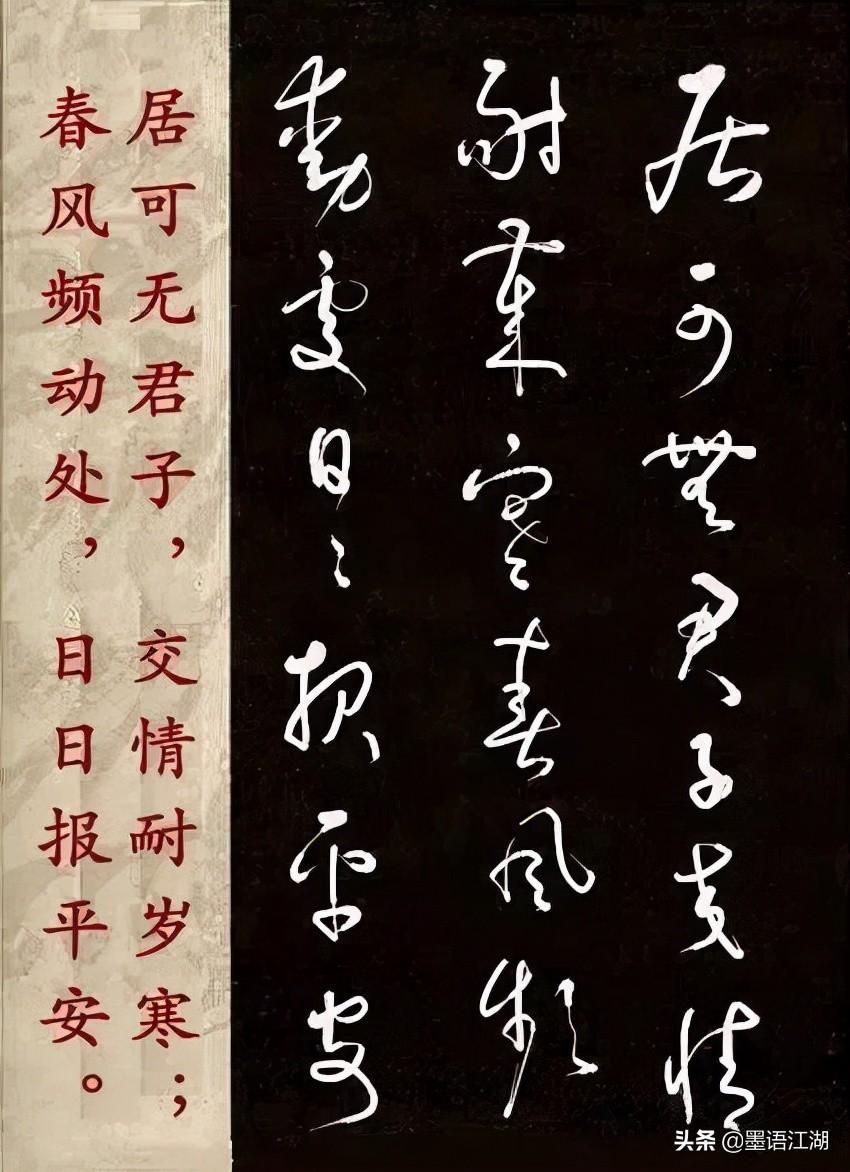 居可無君子交情
耐歲寒春風頻
動處日〻報平安
居可无君子，交情耐岁寒；
春风频动处，日日报平安。
头条 @墨语江湖